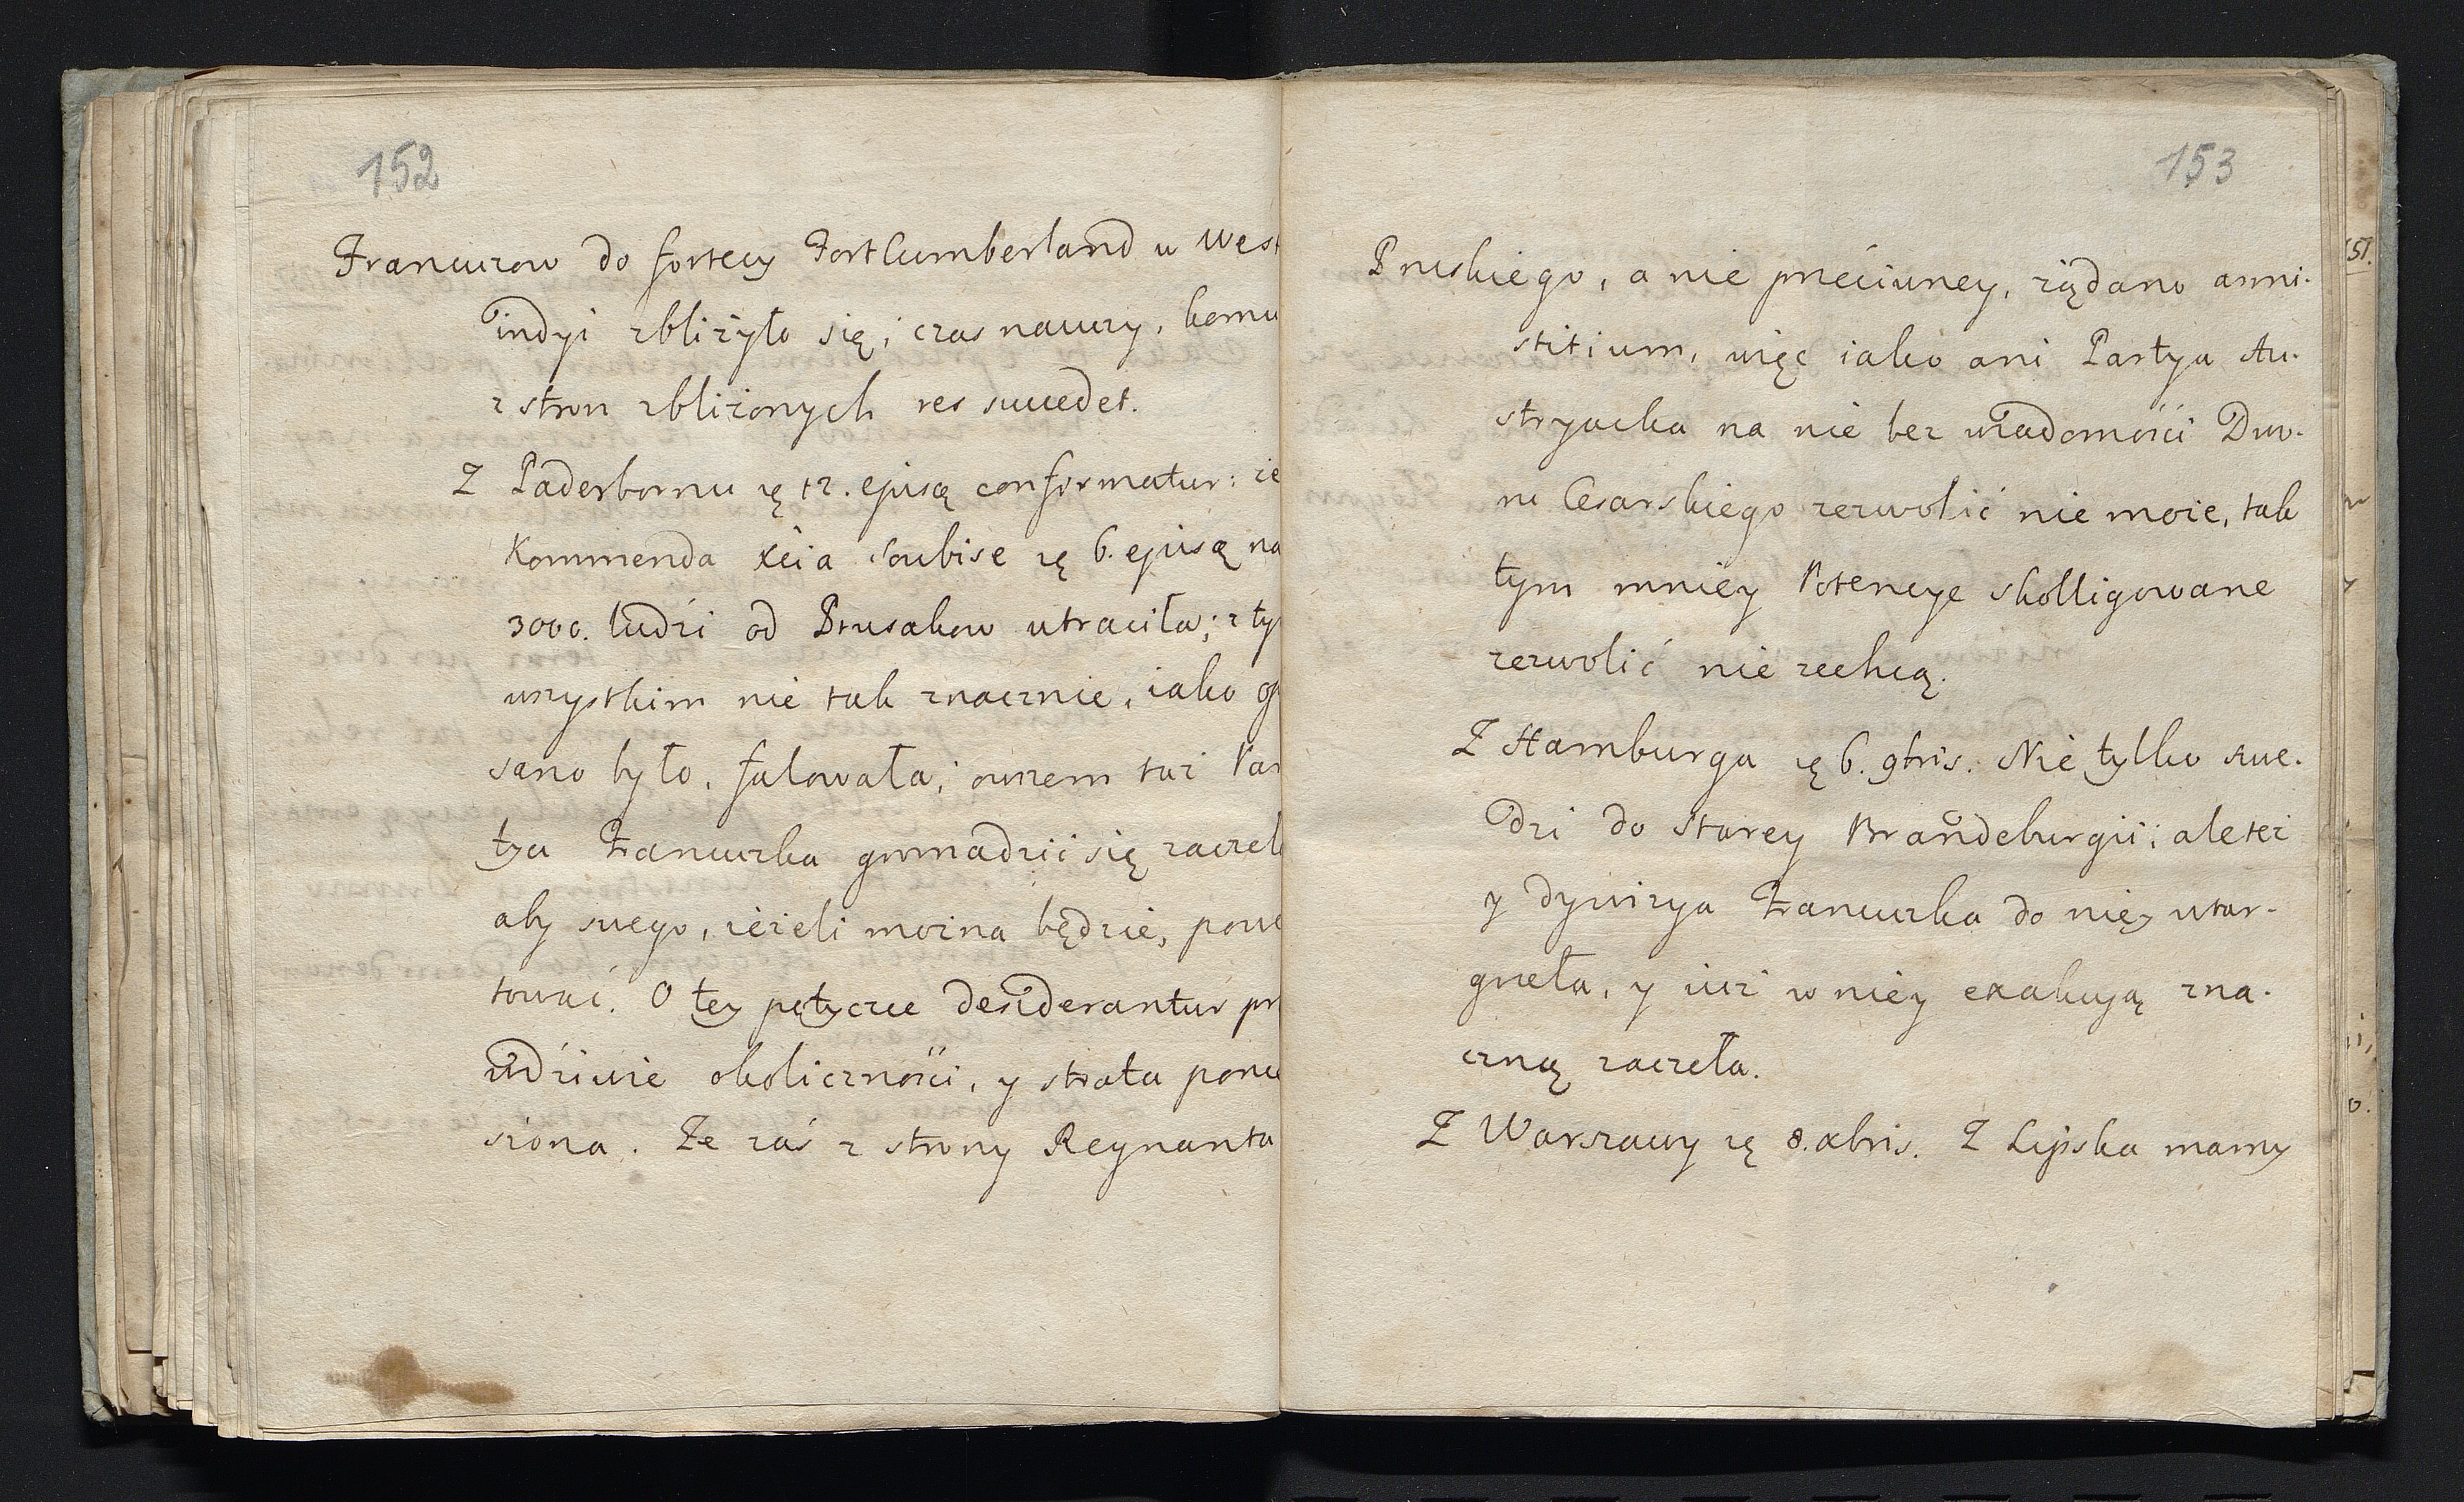 152
Francuzow do fortecy Fort Cumberland w West
indyi zbliżyło się, czas nauczy, komu
z stron zbliżonych res succedet.
Z Paderbornu ię 12. ejusq conformatur: że
Kommenda Xcia Soubise ię 6. ejusq na
3000. ludzi od Prusakow utraciła; z ty
wszystkim nie tak znacznie, iako op
sano było, falowała, owszem taż Par
tya Francuzka gromadzić się zaczęł
aby swego, ieżeli można będzie, powe
tować. O tey potyczce desiderantur pr
wdziwie okoliczności, y strata ponie
siona. Że zaś z strony Regnanta
153
Pruskiego, a nie przeciwney, żądano armi-
stitium, więc iako ani Partya Au-
stryacka na nie bez wiadomości Dwo-
ru Cesarskiego zezwolić nie może, tak
tym mniey Potencye skolligowane
zezwolić nie zechcą.
Z Hamburga ię 6. 9bris. Nie tylko Szwe-
dzi do Starey Brandeburgii; ale też
y dywizya Francuzka do niey wtar-
gneła, y iuż w niey exakcyą zna-
czną zaczeła.
Z Warszawy ię 8. Xbris. Z Lipska mamy
151.